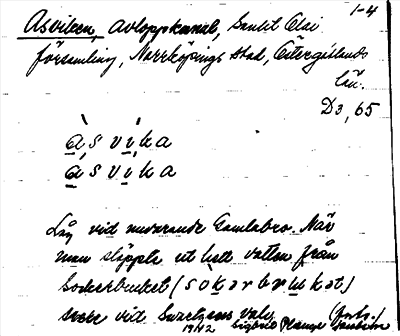 1-4
Asviken, avloppskanal, Sankt Olai
församling, Norrköpings stad, Östergötlands
län.
D3, 65
àsvika
asvika
Låg vid nuvarande Gamlabro. När
man släppte ut hett vatten från
Sockerbruket (sokərbrukət)
vid
1942 Sigvald (forts.)